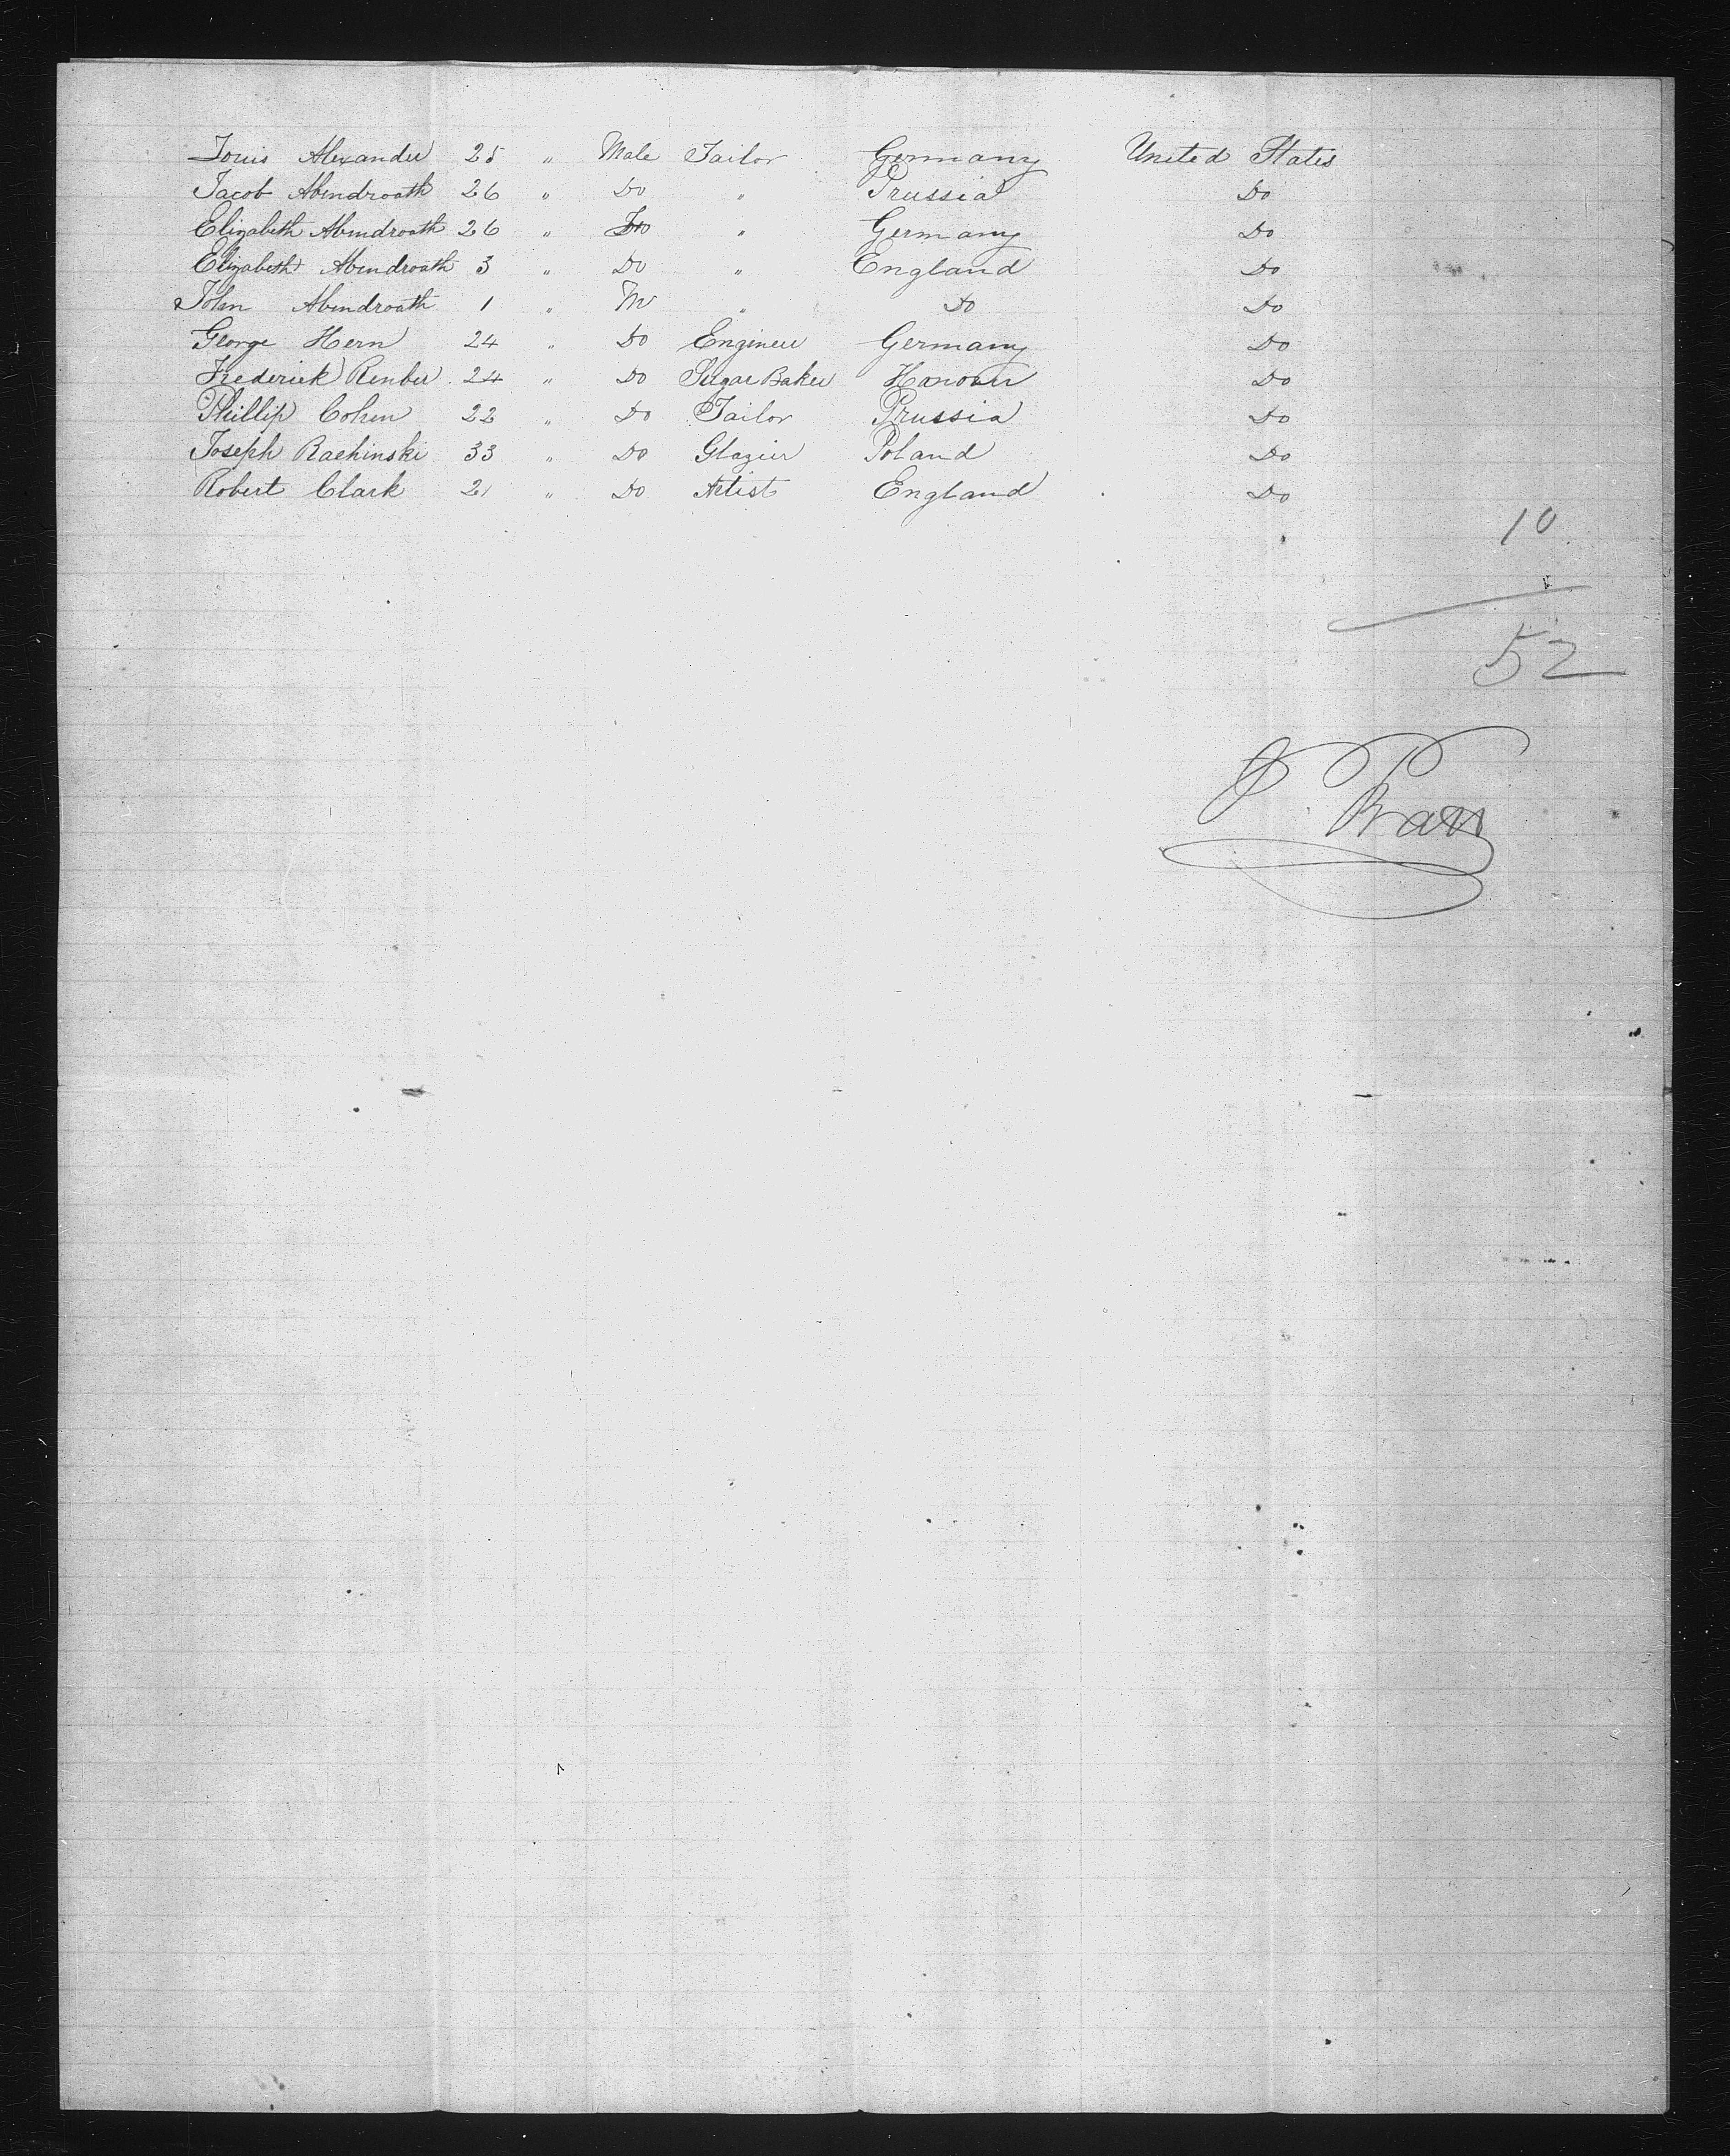 Louis Alexander 25 " Male Tailor Germany United States
Jacob Abendroath 26 " Do " Prussia Do
Elizabeth Abendroath 26 " " Germany Do
Elizabeth Abendroath 3 " Do " England Do
John Abendroath 1 " M " Do Do
George Hern 24 " Do Engineer Germany Do
Frederick Renber 24 " Do Sugar Baker Hanover Do
Phillip Cohen 22 " Do Tailor Prussia Do
Joseph Rachinski 33 " Do Glazier Poland Do
Robert Clark 21 " Do Artist England Do
10
52